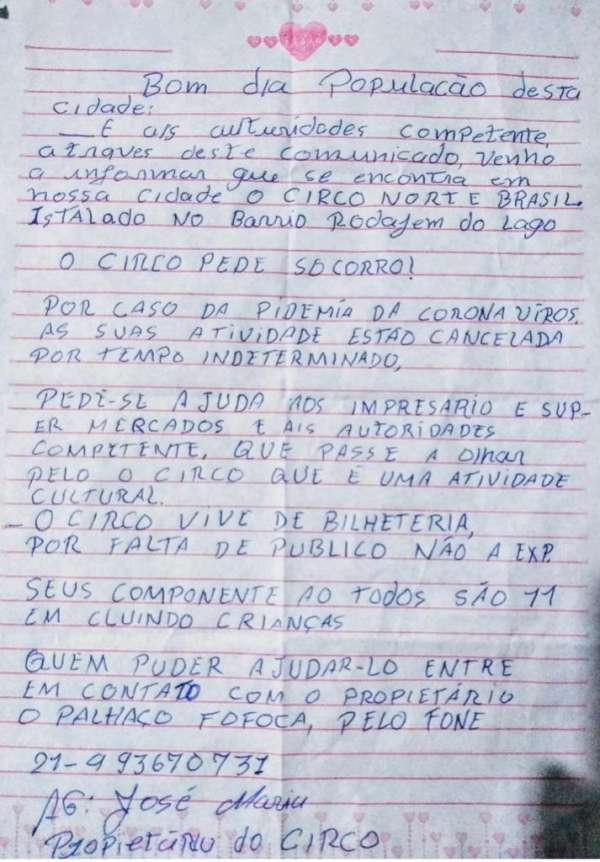 Bom dia População desta
cidade:
— E ais autoridades competente,
atraves deste comunicado, venho
a informar que se encontra em
nossa cidade o CIRCO NORTE BRASIL.
IsTALado No Barrio Rodagem do Lago
O CIRCO PEDE SOCORRO!
POR CASO DA PIDEMIA DA CORONA VIROS.
AS SUAS ATIVIDADE ESTÃO CANCELADA
POR TEMPO INDETERMINADO,
PEDE-SE AJUDA AOS IMPRESARIO E SUP-
ER MERCADOS E AIS AUTORIDADES
COMPETENTE, QUE PASSE A Olhar
PELO O CIRCO QUE E UMA ATIVIDADE
CULTURAL.
— O CIRCO VIVE DE BILHETERIA,
POR FALTA DE PUBLICO NÃO A EXP.
SEUS COMPONENTE AO TODOS SÃO 11
EM CLUINDO CRIANÇAS
QUEM PUDER AJUDAR-LO ENTRE
EM CONTATO COM O PROPIETÁRIO
O PALHAÇO FOFOCA, PELO FONE
21-993670731
AG: José Maria
Propietário do CIRCO